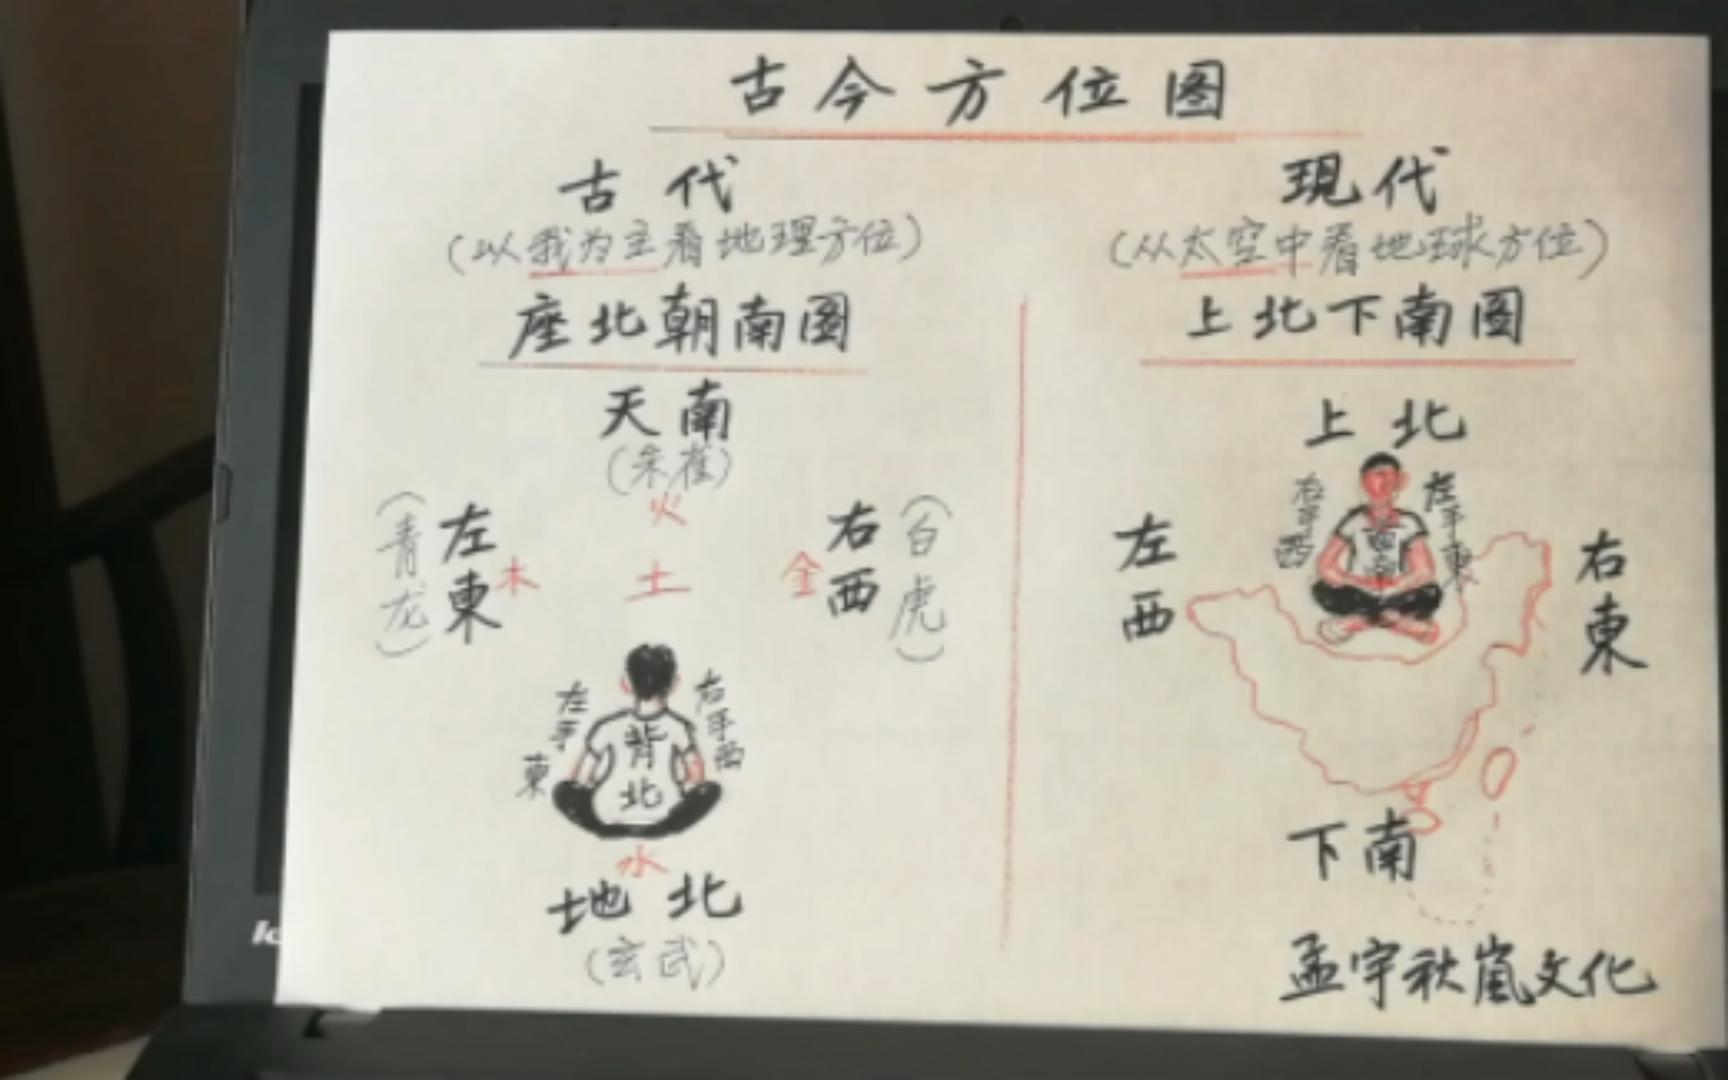 古今方位图
古代
(以我为主看地理方位)
座北朝南图
天南
(朱雀)
火
(青龙)
左東
木
土
金
右西
(白虎)
左手
東
背北
右手西
水
地北
(玄武)
現代
(从太空中看地球方位)
上北下南图
上北
左西
右手西
左手東
右東
下南
孟宇秋嵐文化